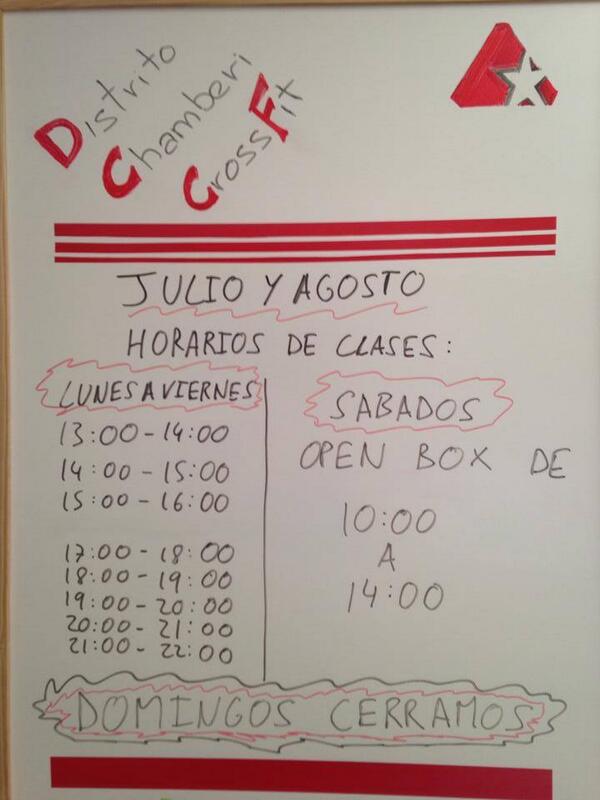 Distrito
Chamberi
CrossFit
JULIO Y AGOSTO
HORARIOS DE CLASES:
LUNES A VIERNES
13:00-14:00
14:00-15:00
15:00-16:00
17:00-18:00
18:00-19:00
19:00-20:00
20:00-21:00
21:00-22:00
SABADOS
OPEN BOX DE
10:00
A
14:00
DOMINGOS CERRAMOS